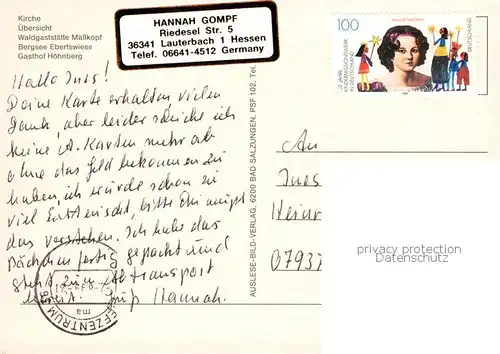 Kirche
Übersicht
Waldgaststätte Maßkopf
Bergsee Ebertswiese
Gasthof Höhnberg
HANNAH GOMPF
Riedesel Str. 5
36341 Lauterbach 1 Hessen
Telef. 06641-4512 Germany
100
KINDERMISSIONSWERK
IN DEUTSCHLAND
DEUTSCHLAND
Hallo Ines!
Deine Karte erhalten vielen
Dank, aber leider schicke ich
keine A. Karten mehr ab
ohne das Geld bekommen zu
haben, ich wurde schon zu
viel enttäuscht, bitte Du mußt
das verstehen. Ich habe das
Päckchen fertig gepackt und
steht zum Abtransport
bereit. Gruß Hannah.
AUSLESE-BILD-VERLAG, 6200 BAD SALZUNGEN, PSF 102, Tel.
An
Ines
Heinr
07937
privacy protection
Datenschutz
BRIEFZENTRUM
ma